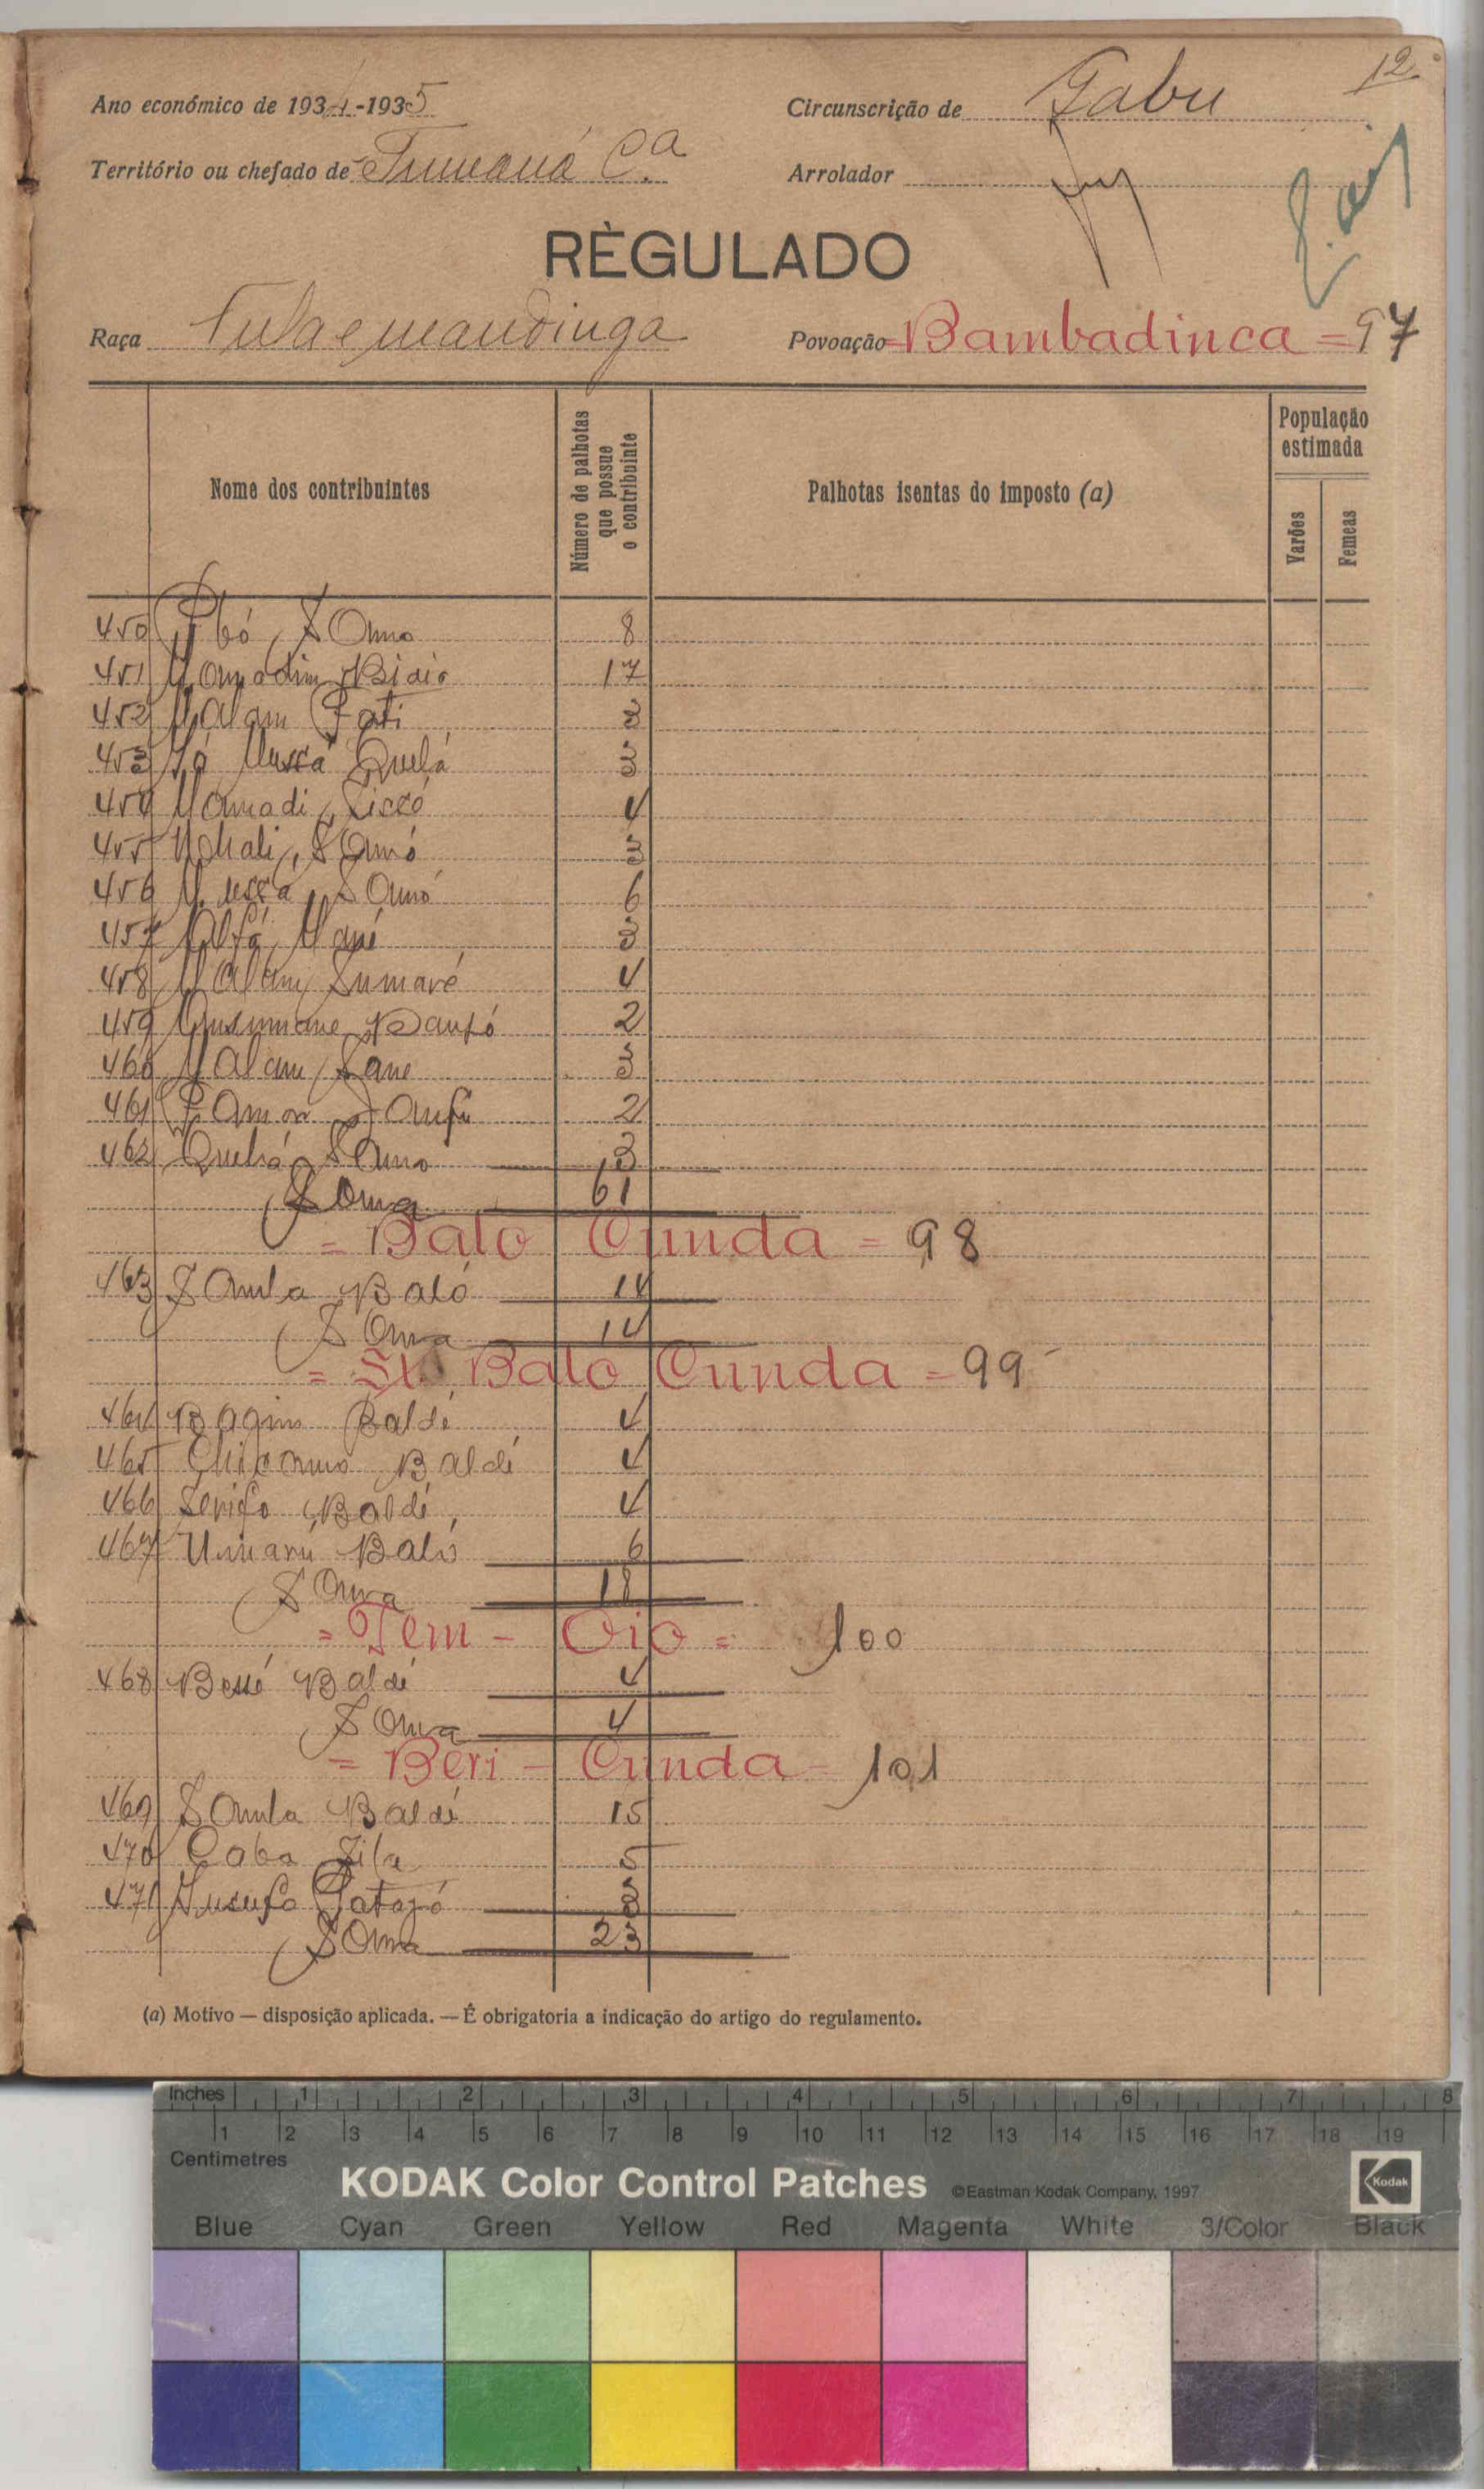 12
Ano económico de 1934-1935
Circunscrição de Gabu
Território ou chefado de Tumaná C.a
Arrolador
RÈGULADO
Raça Fula e mandinga
Povoação = Bambadinca = 97
Nome dos contribuintes
Número de palhotas que possue o contribuinte
Palhotas isentas do imposto (a)
População estimada
Varões
Femeas
450 Samo 8
451 17
452 Malam Fati 2
453 Mussá Quelá 3
454 Mamadi Sissé 4
455 Samó 3
456 Mussá Samó 6
457 Alfá Mané 3
458 Malam Sumaré 4
459 Qussumane 2
460 Malam Sane 3
461 2
462 Samo 3
Soma 61
= Balo Cunda = 98
463 Samba Baló 14
Soma 14
= St. Balo Cunda = 99
464 Baldé 4
465 Baldé 4
466 Serifo Baldé 4
467 Umarú Baló 6
Soma 18
= Tem - Oio = 100
468 Baldé 4
Soma 4
= Beri - Cunda = 101
469 Samba Baldé 15
470 Caba Sila 5
471 Jusufo 3
Soma 23
(a) Motivo — disposição aplicada. — É obrigatoria a indicação do artigo do regulamento.
Inches 1 2 3 4 5 6 7 8
1 2 3 4 5 6 7 8 9 10 11 12 13 14 15 16 17 18 19
Centimetres
KODAK Color Control Patches ©Eastman Kodak Company, 1997
Kodak
Blue Cyan Green Yellow Red Magenta White 3/Color Black